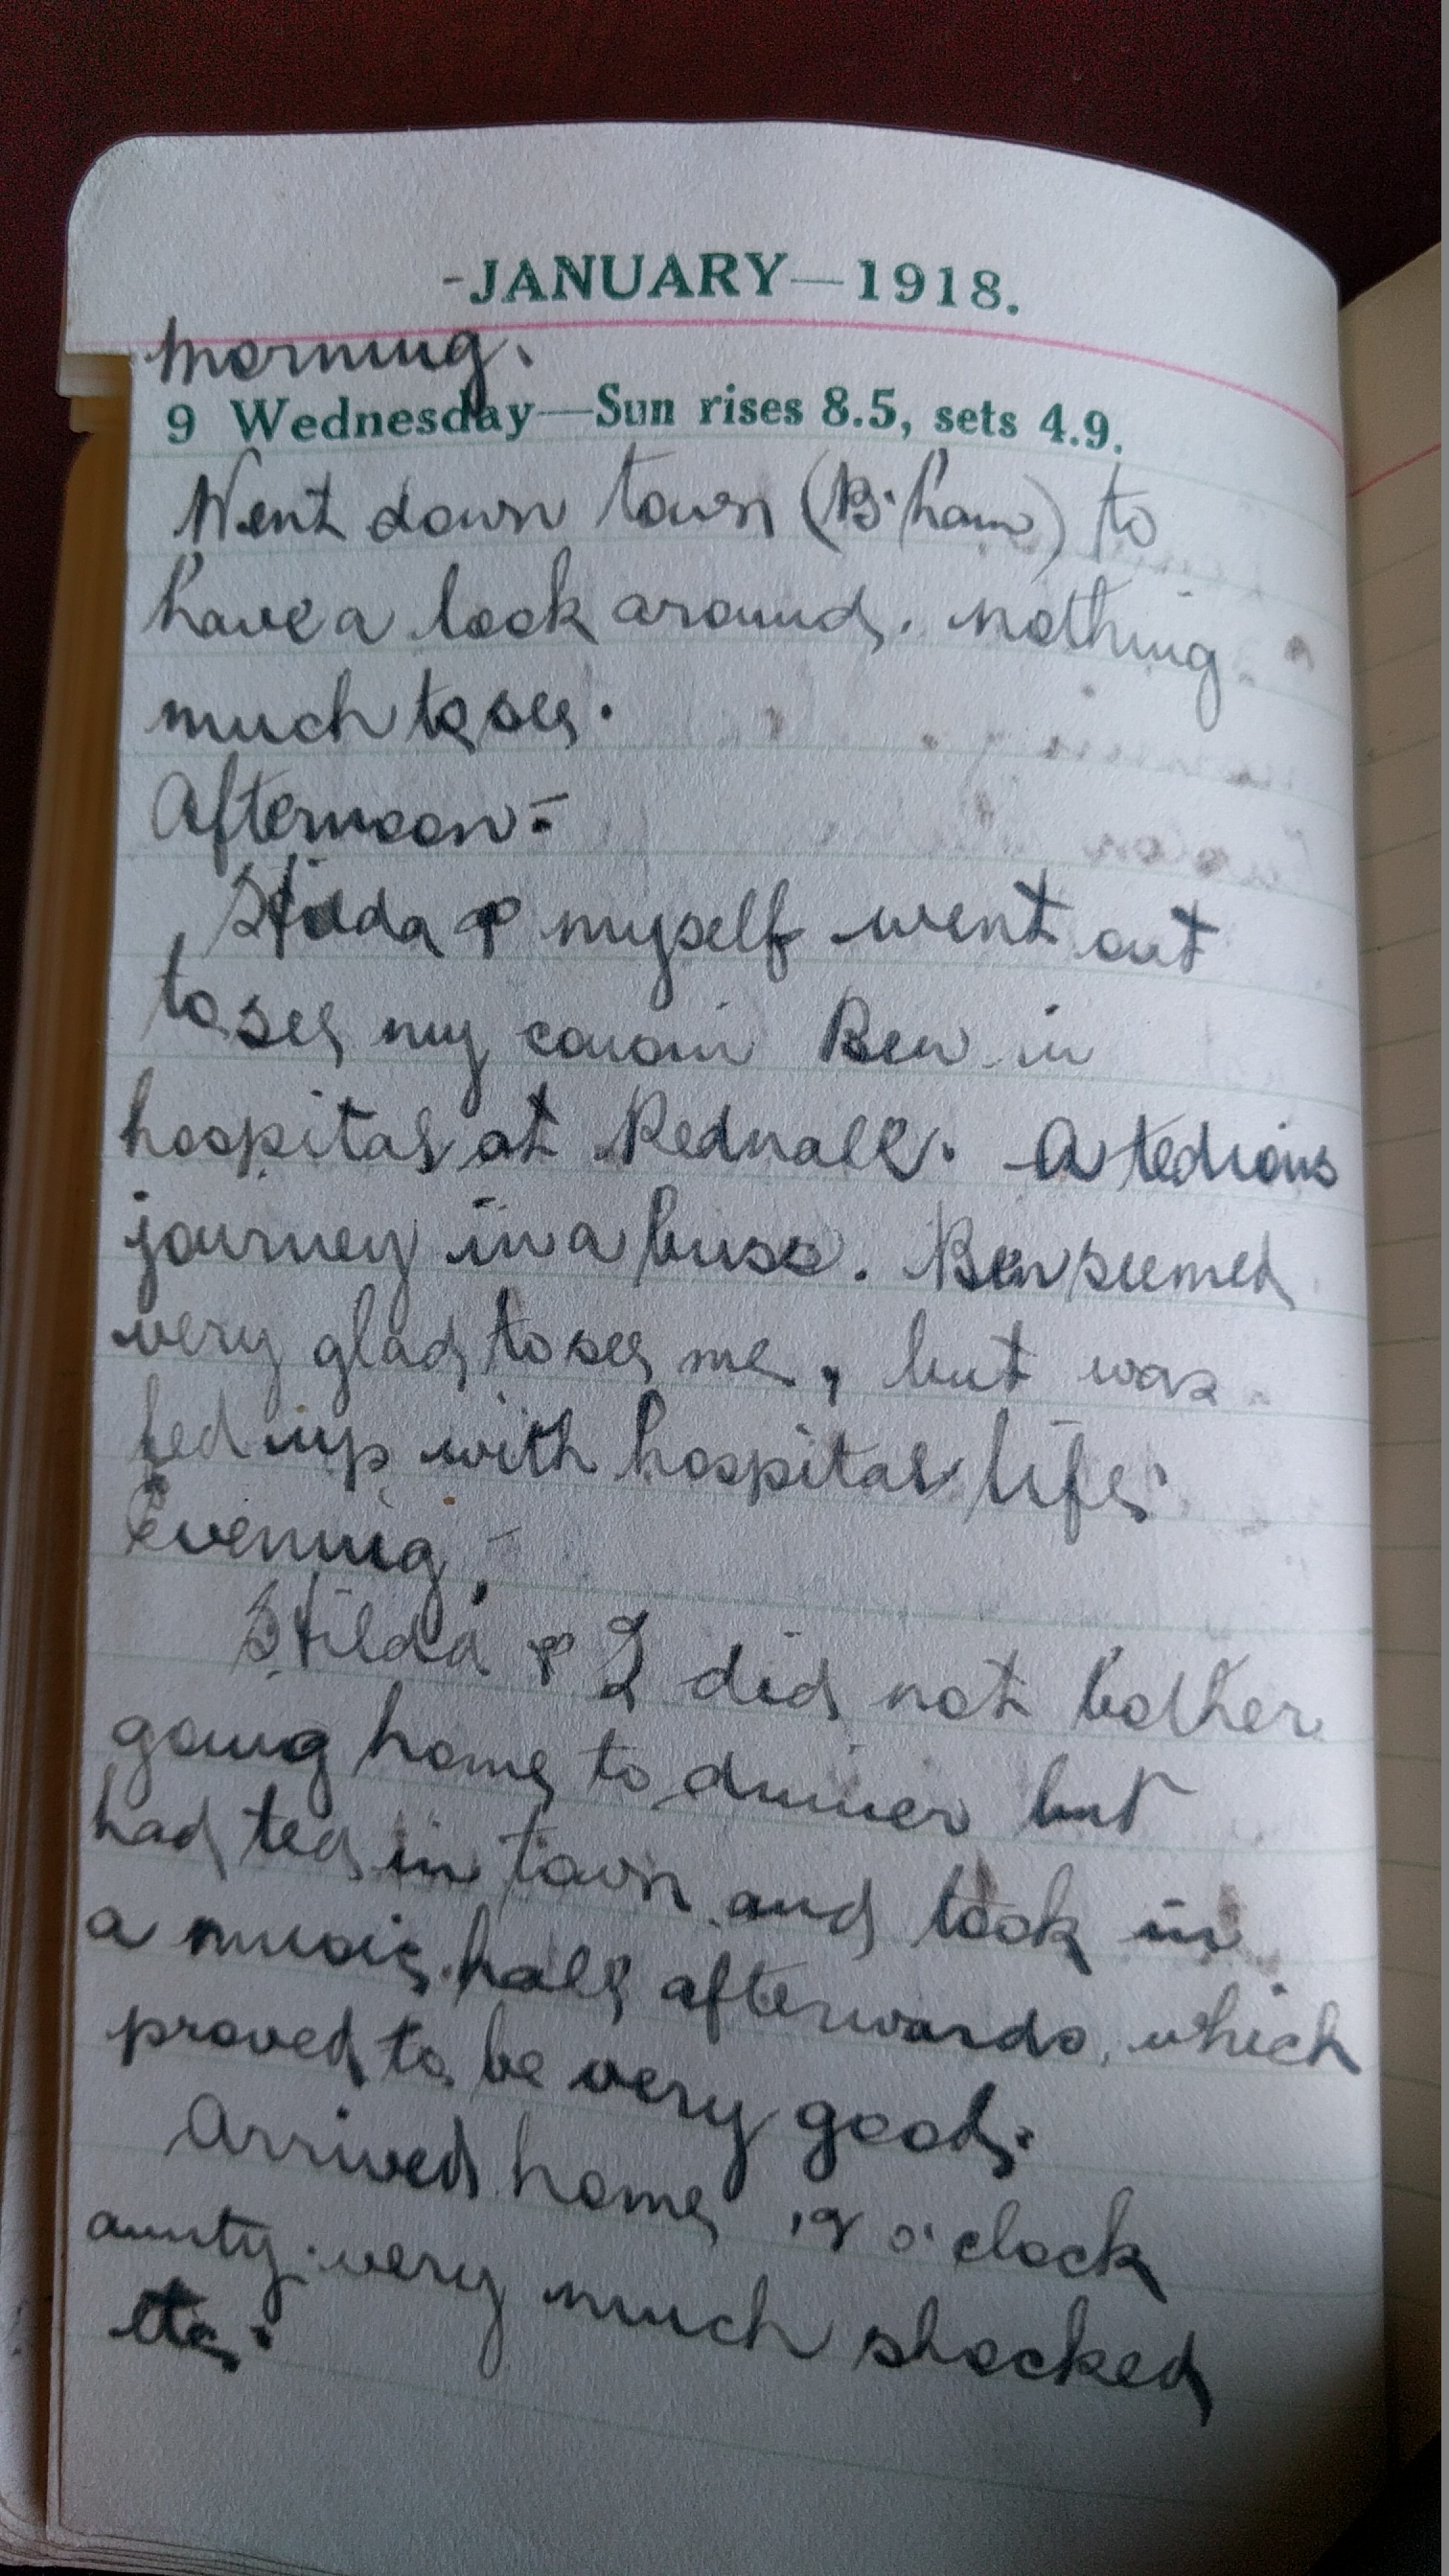 -JANUARY—1918.
Morning.
9 Wednesday—Sun rises 8.5, sets 4.9.
Went down town (B'ham) to
have a look around, nothing
much to see.
Afternoon:-
Hilda & myself went out
to see my cousin Ben in
hospital at Rednall. A tedious
journey in a buss. Ben seemed
very glad to see me, but was
fed up with hospital life.
Evening,-
Hilda & I did not bother
going home to dinner but
had tea in town and took in
a music hall afterwards, which
proved to be very good.
Arrived home 12 o'clock
aunty very much shocked
etc.